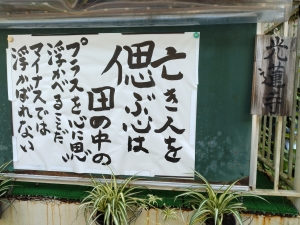 亡き人を
偲ぶ心は
田の中の
プラスを心に思い
浮かべることだ
マイナスでは
浮かばれない
光蓮寺